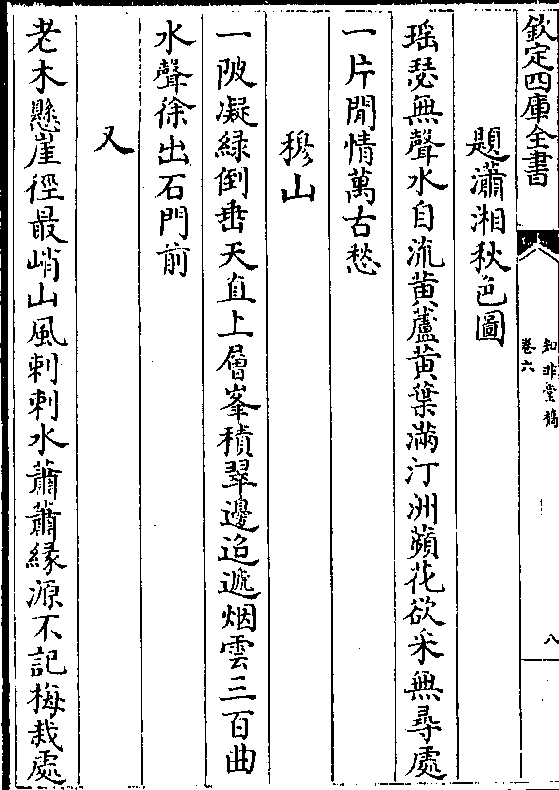 欽定四庫全書
知非堂稿
卷六
八
題瀟湘秋色圖
瑶瑟無聲水自流黄蘆黄葉滿汀洲蘋花欲采無尋處
一片閒情萬古愁
穆山
一陂凝緑倒垂天直上層峯積翠邊迢遞烟雲三百曲
水聲徐出石門前
又
老木懸崖徑最峭山風刺刺水蕭蕭緣源不記梅栽處